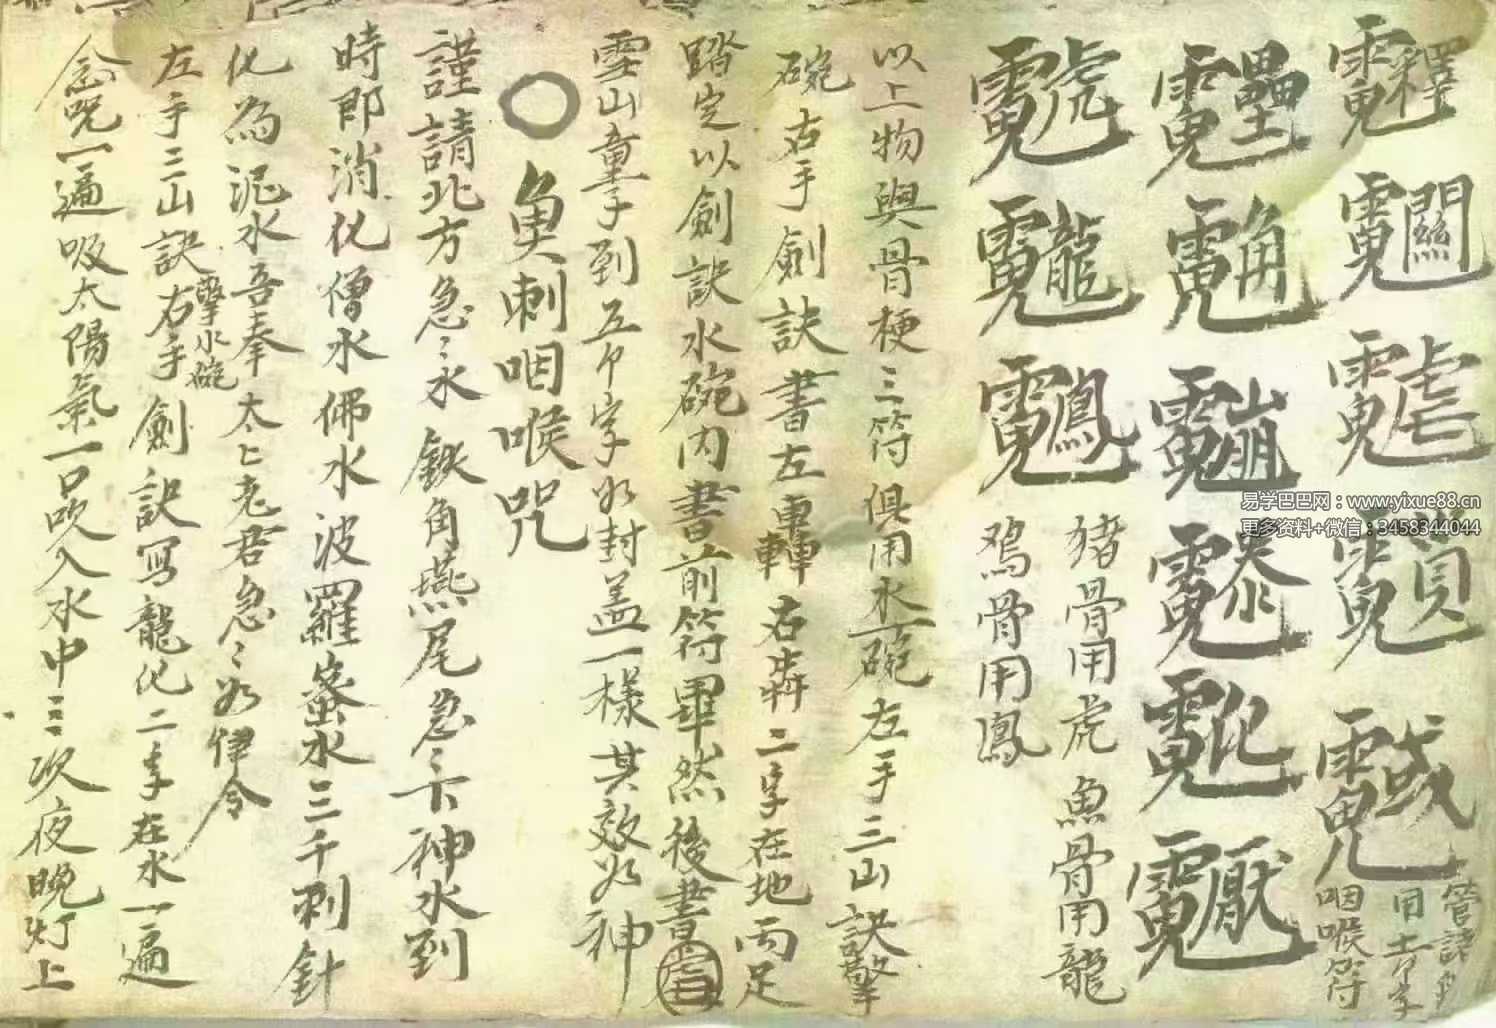 咽喉符
豬骨用虎 魚骨用龍
鸡骨用鳳
以上物與骨梗三符俱用水一碗左手三山訣擎
碗右手劍訣書左轟右犇二字在地両足
踏定以劍訣水碗内書前符畢然後書
雪山童子到五个字如封盖一樣其效如神
〇魚刺咽喉咒
謹請北方急々水鉄角燕尾急々下神水到
時即消化僧水佛水波羅蜜水三千刺針
化為泥水吾奉太上老君急々如律令
左手三山訣擎水碗右手劍訣写龍化二字在水一遍
念咒一遍吸太陽氣一口吹入水中三次夜晚灯上
易学巴巴网：www.yixue88.cn
更多资料+微信：3458344044